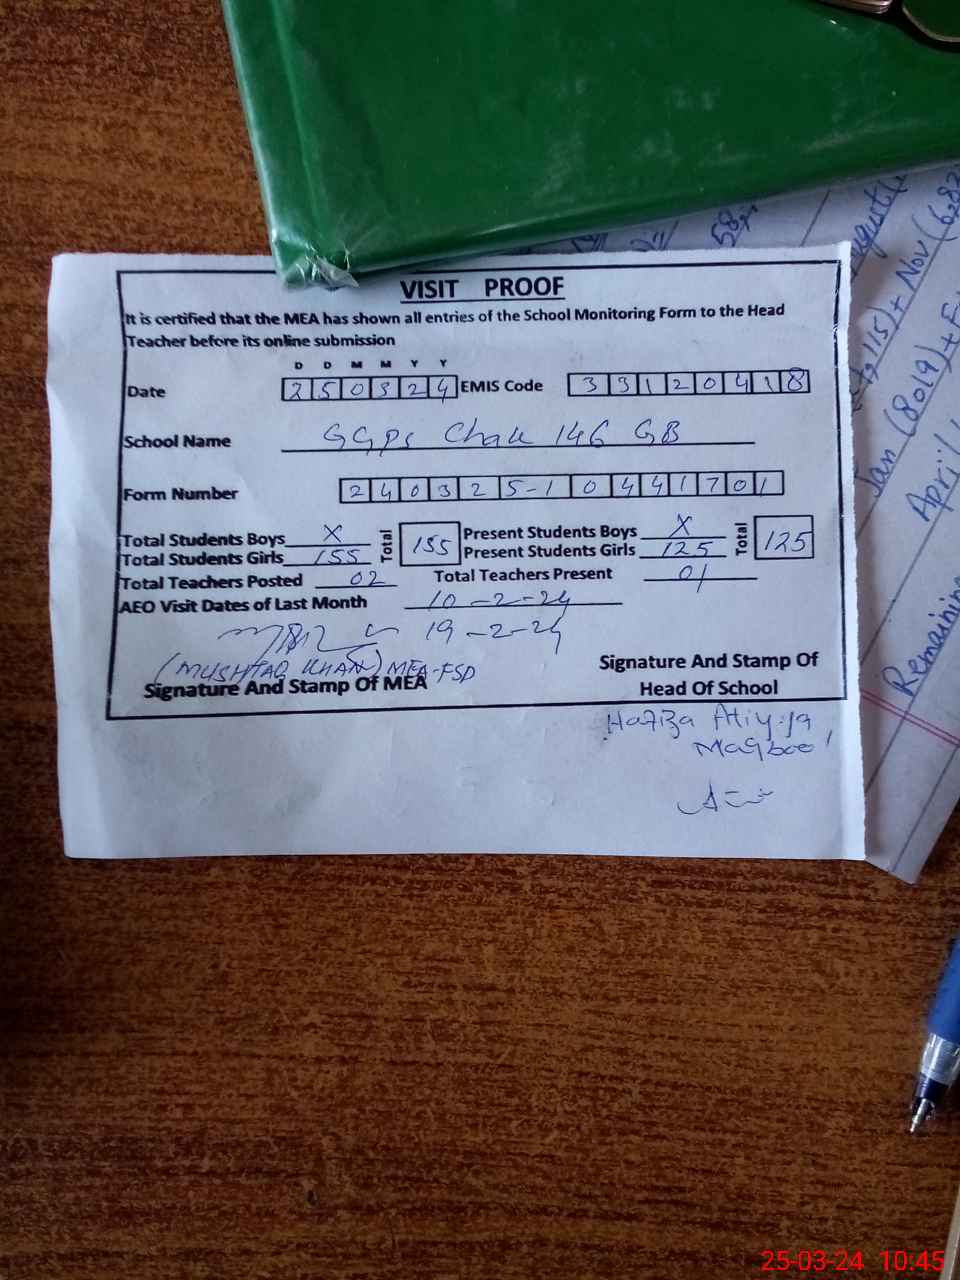 VISIT PROOF
It is certified that the MEA has shown all entries of the School Monitoring Form to the Head
Teacher before its online submission
D D M M Y Y
Date 250324 EMIS Code 33120418
School Name GGPS Chak 146 GB
Form Number 240325-10441701
Total Students Boys X Total 155 Present Students Boys X Total 125
Total Students Girls 155 Present Students Girls 125
Total Teachers Posted 02 Total Teachers Present 01
AEO Visit Dates of Last Month 10-2-24
19-2-24
(MUSHTAQ KHAN) MEA-FSD
Signature And Stamp Of MEA
Signature And Stamp Of
Head Of School
Hafiza Atiyya
Maqbool
58
August
115)+ Nov(6,82
Jan (8019)+
April
Remaining
25-03-24 10:45